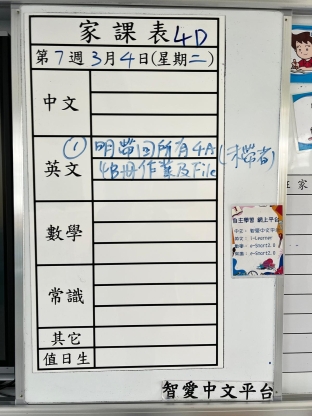 家課表 4D
第7週3月4日(星期二)
中文
英文
① 明帶回所有4A (未帶者)
4B冊作業及File
數學
常識
其它
值日生
自主學習 網上平台
中文：智愛中文平台
英文：i-Learner
數學：e-Smart2.0
常識：e-Smart2.0
智愛中文平台